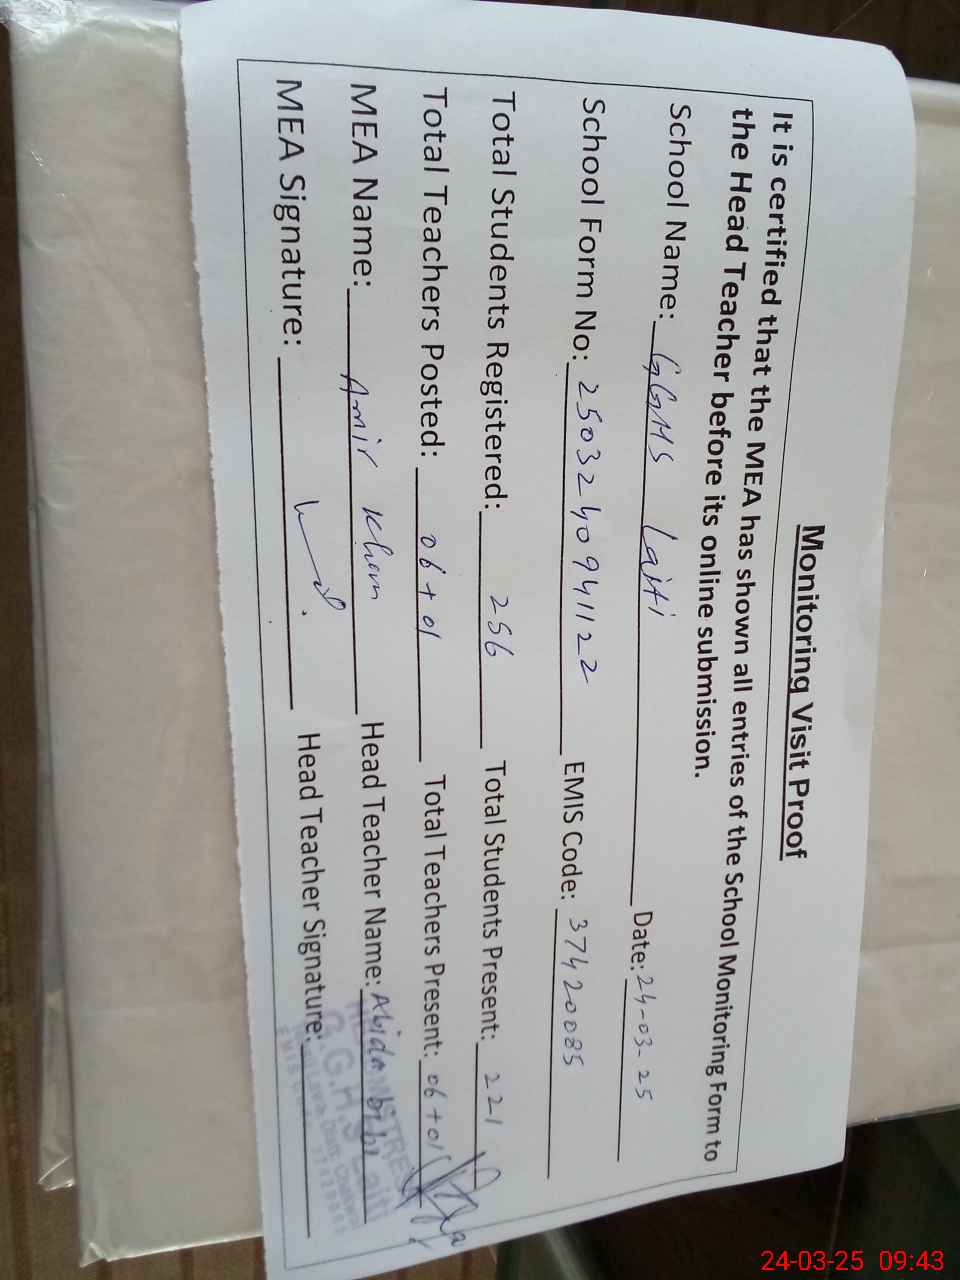 Monitoring Visit Proof
It is certified that the MEA has shown all entries of the School Monitoring Form to
the Head Teacher before its online submission.
School Name: GGHS Laiti Date: 24-03-25
School Form No: 2503240941122 EMIS Code: 37420085
Total Students Registered: 256 Total Students Present: 221
Total Teachers Posted: 06+01 Total Teachers Present: 06+01
MEA Name: Amir Khan Head Teacher Name: Abida bibi
MEA Signature: Head Teacher Signature:
G.G.H.S Laiti
24-03-25 09:43